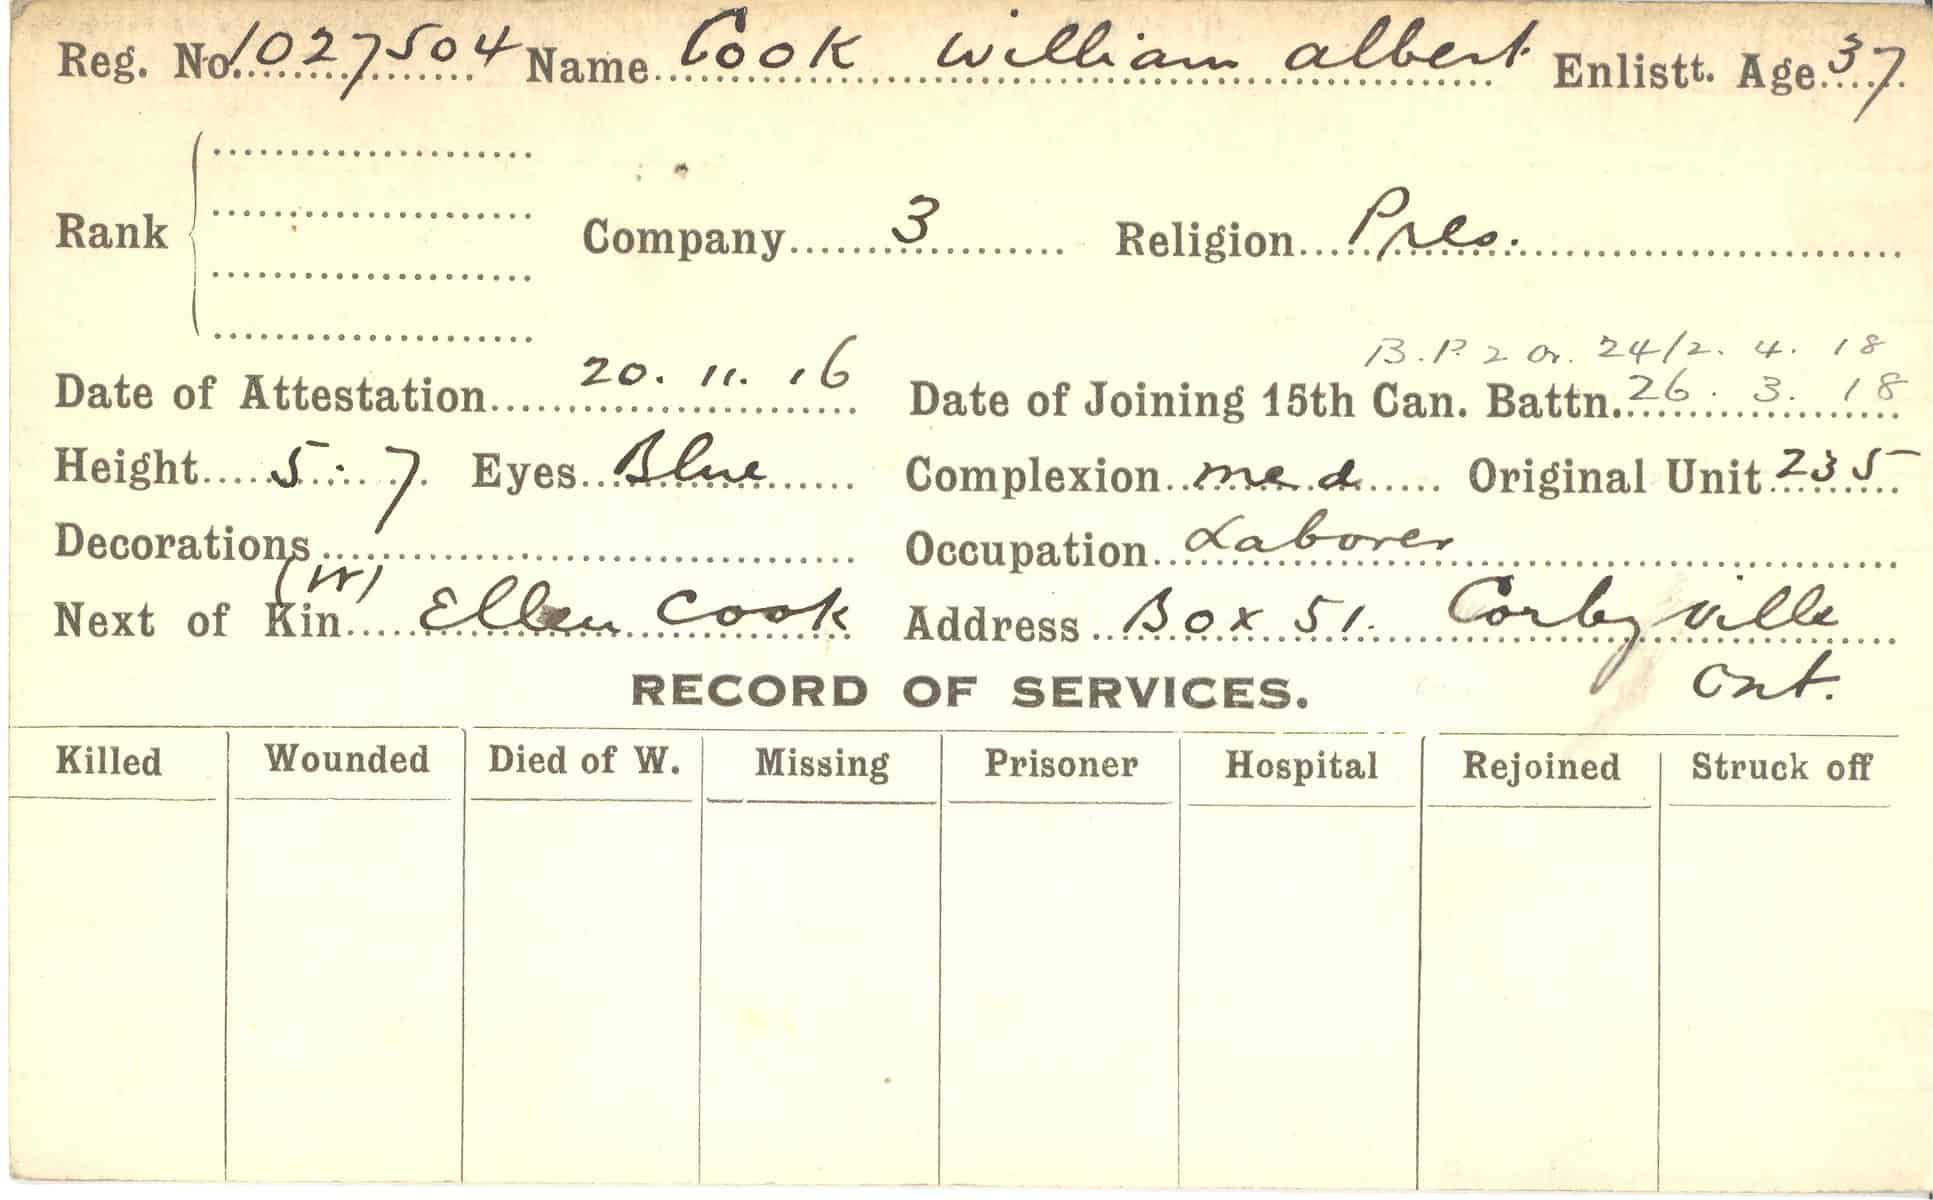 Reg. No. 1027504 Name Cook William Albert Enlistt. Age 37
Rank Company 3 Religion Pres.
B.P. 2 Or. 24/2. 4. 18
Date of Attestation 20. 11. 16 Date of Joining 15th Can. Battn. 26. 3. 18
Height 5. 7 Eyes Blue Complexion med Original Unit 235
Decorations Occupation Laborer
(W)
Next of Kin Ellen Cook Address Box 51. Corbyville
Ont.
RECORD OF SERVICES.
Killed Wounded Died of W. Missing Prisoner Hospital Rejoined Struck off